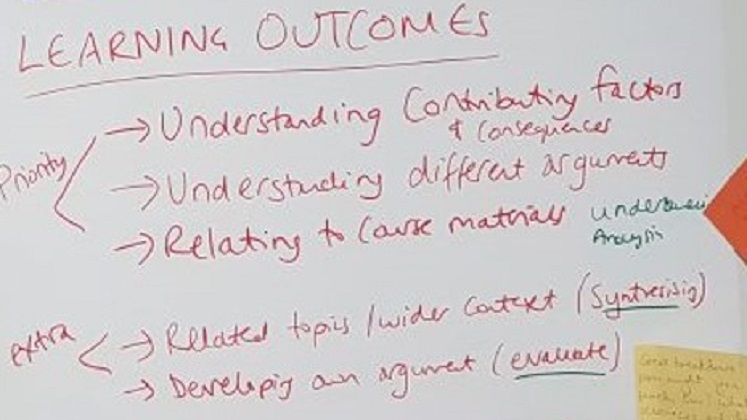 LEARNING OUTCOMES
Priority
→ Understanding Contributing factors
+ Consequences
→ Understanding different arguments
→ Relating to Course materials
Analysis
extra
→ Related topis / wider Context (Syntresisig)
→ Developig own argument (evaluate)